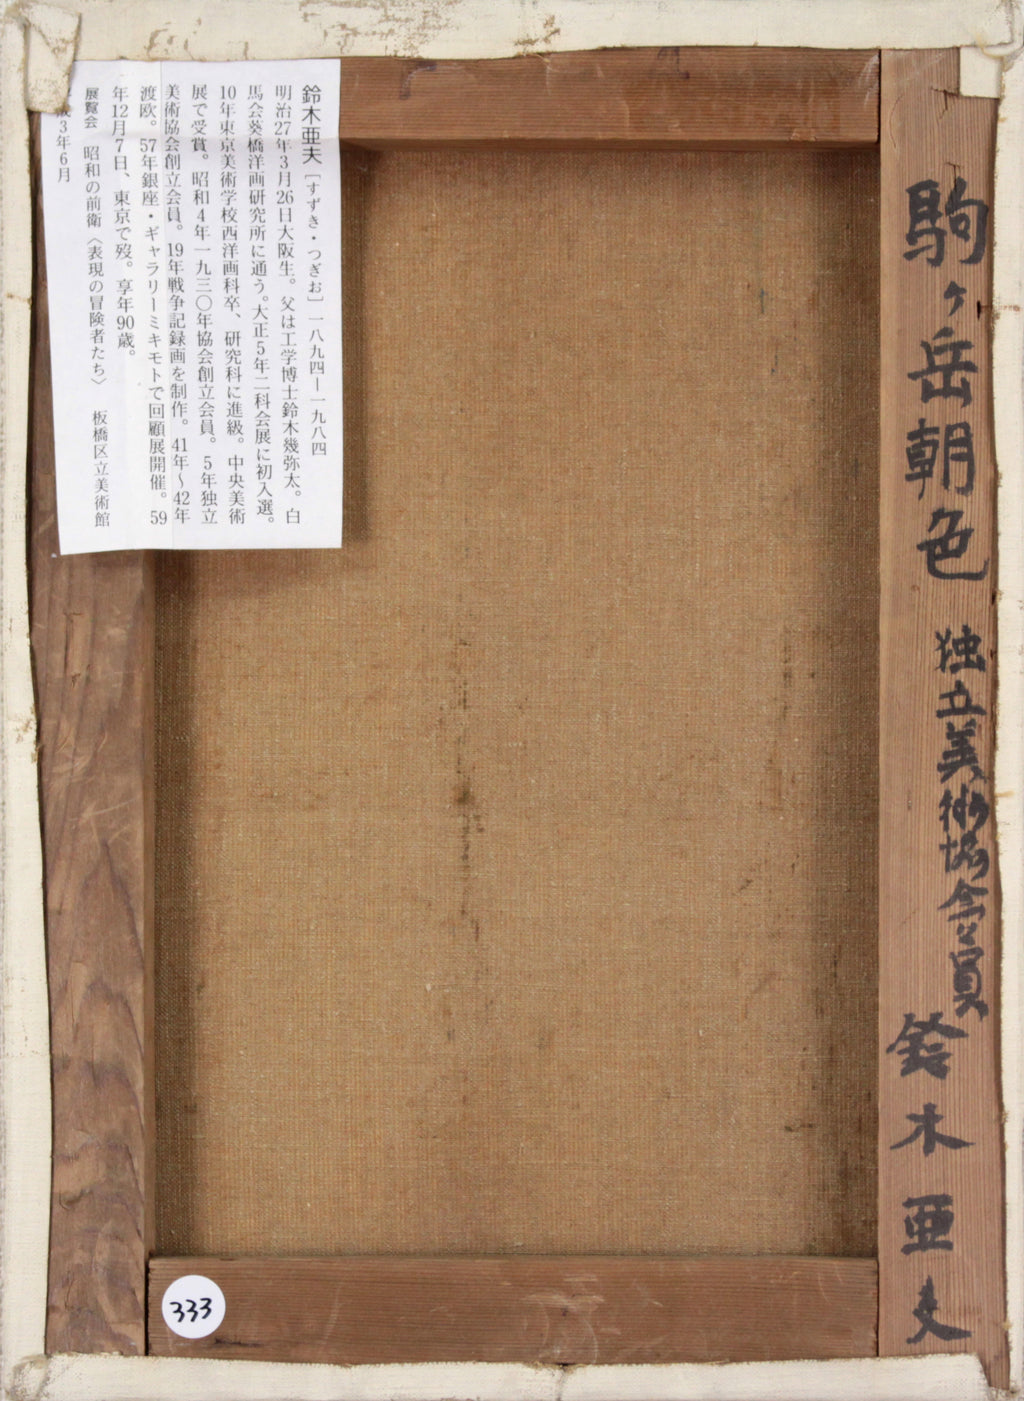 駒ヶ岳朝色 独立美術協会々員 鈴木亜夫
鈴木亜夫［すずき・つぎお］一八九四―一九八四
明治27年3月26日大阪生。父は工学博士鈴木幾弥太。白
馬会葵橋洋画研究所に通う。大正5年二科会展に初入選。
10年東京美術学校西洋画科卒、研究科に進級。中央美術
展で受賞。昭和4年一九三〇年協会創立会員。5年独立
美術協会創立会員。19年戦争記録画を制作。41年～42年
渡欧。57年銀座・ギャラリーミキモトで回顧展開催。59
年12月7日、東京で歿。享年90歳。
展覧会 昭和の前衛〈表現の冒険者たち〉 板橋区立美術館
成3年6月
333